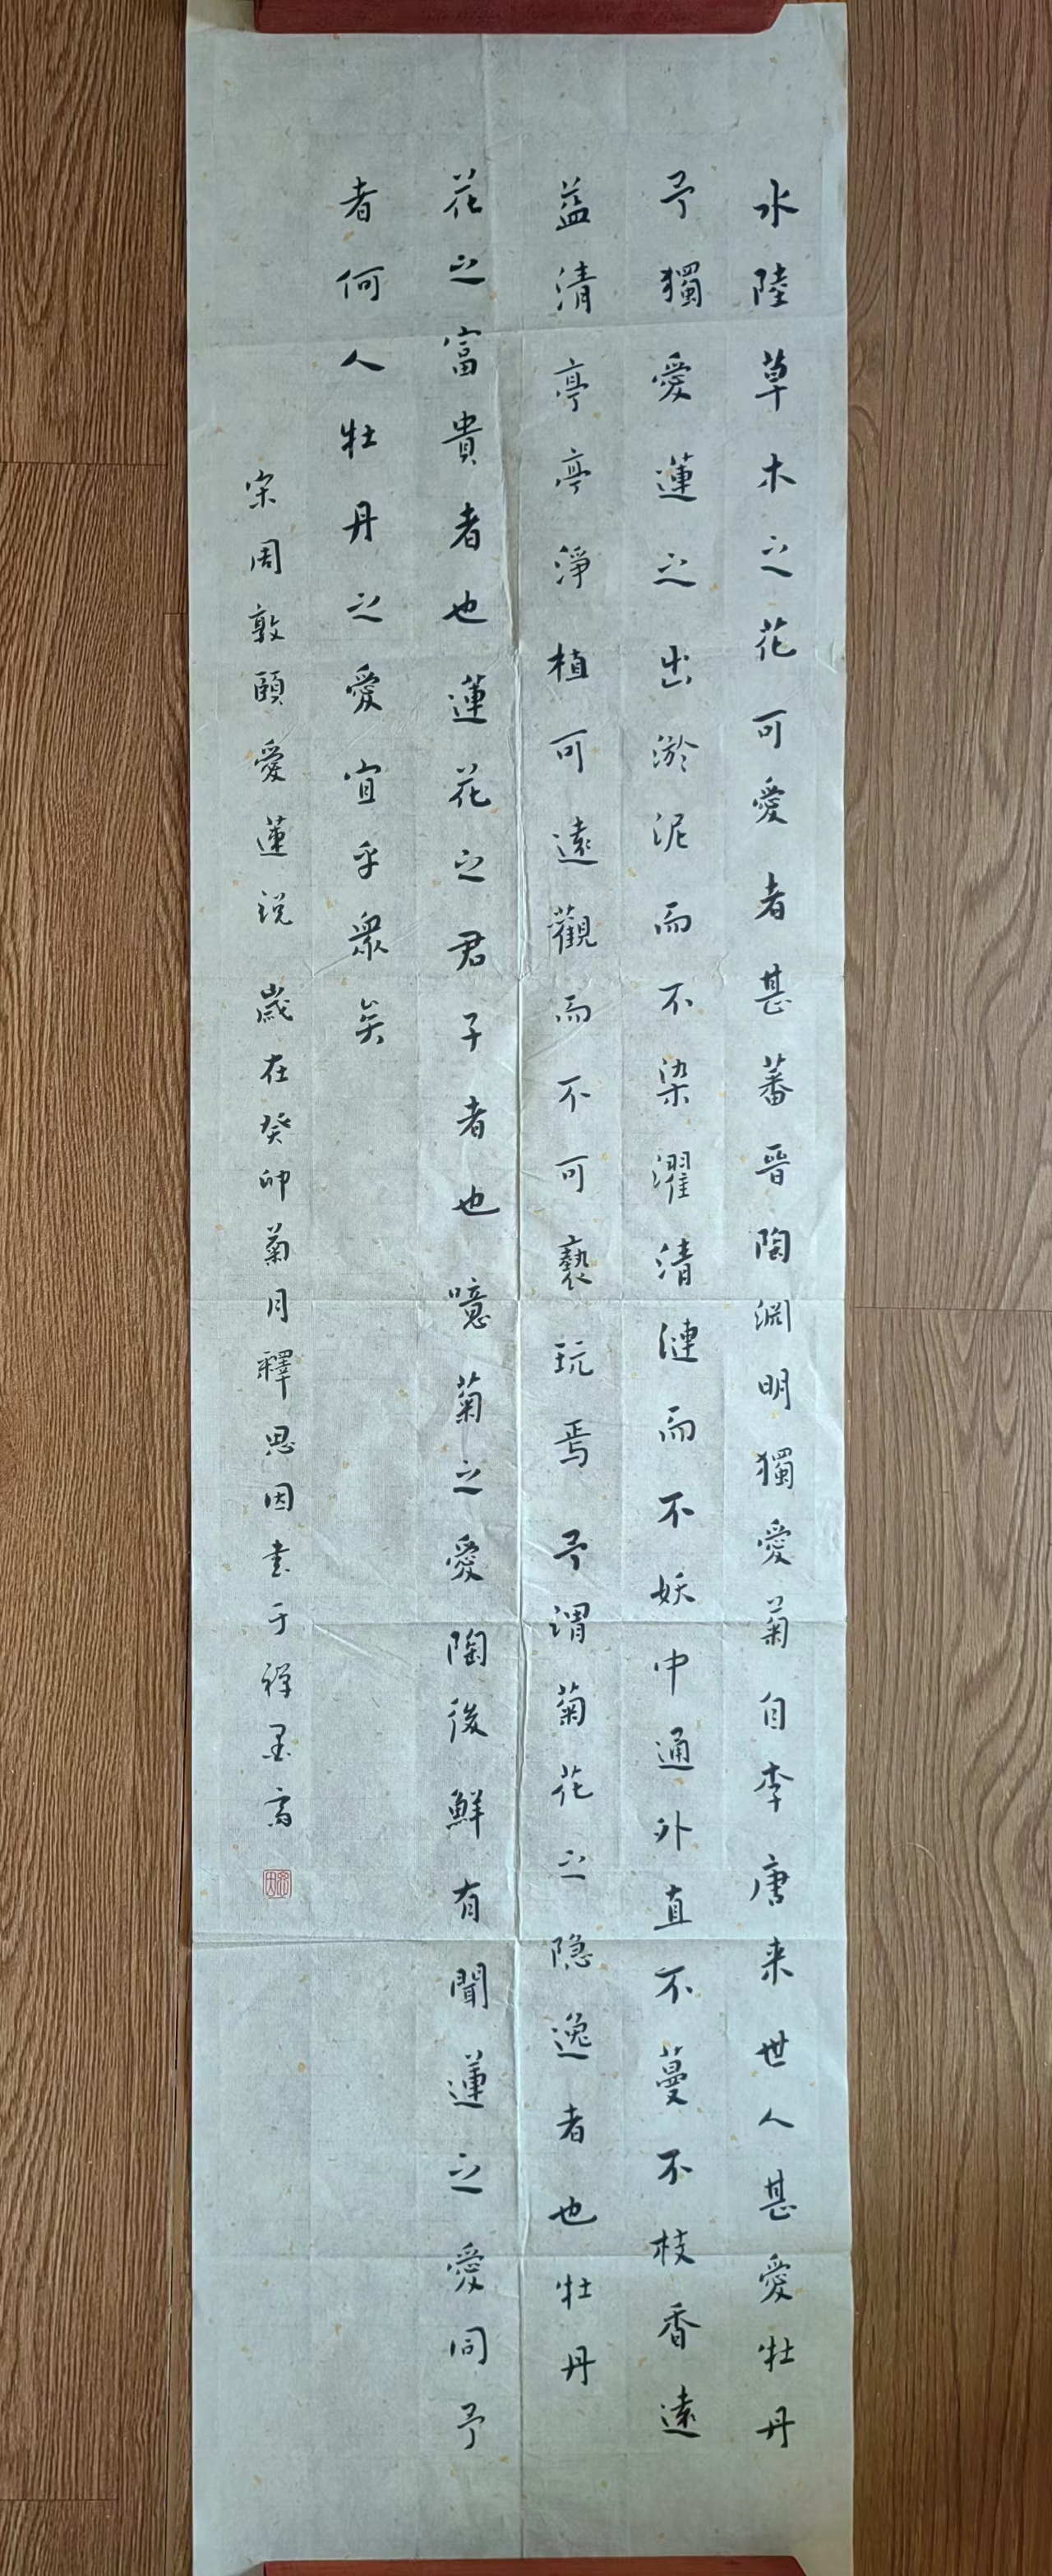 水陸草木之花可愛者甚蕃晉陶淵明獨愛菊自李唐来世人甚愛牡丹
予獨愛蓮之出淤泥而不染濯清漣而不妖中通外直不蔓不枝香遠
益清亭亭淨植可遠觀而不可褻玩焉予謂菊花之隐逸者也牡丹
花之富貴者也蓮花之君子者也噫菊之愛陶後鮮有聞蓮之愛同予
者何人牡丹之愛宜乎衆矣
宋周敦頤愛蓮説歲在癸卯菊月釋思因書于禅墨斋